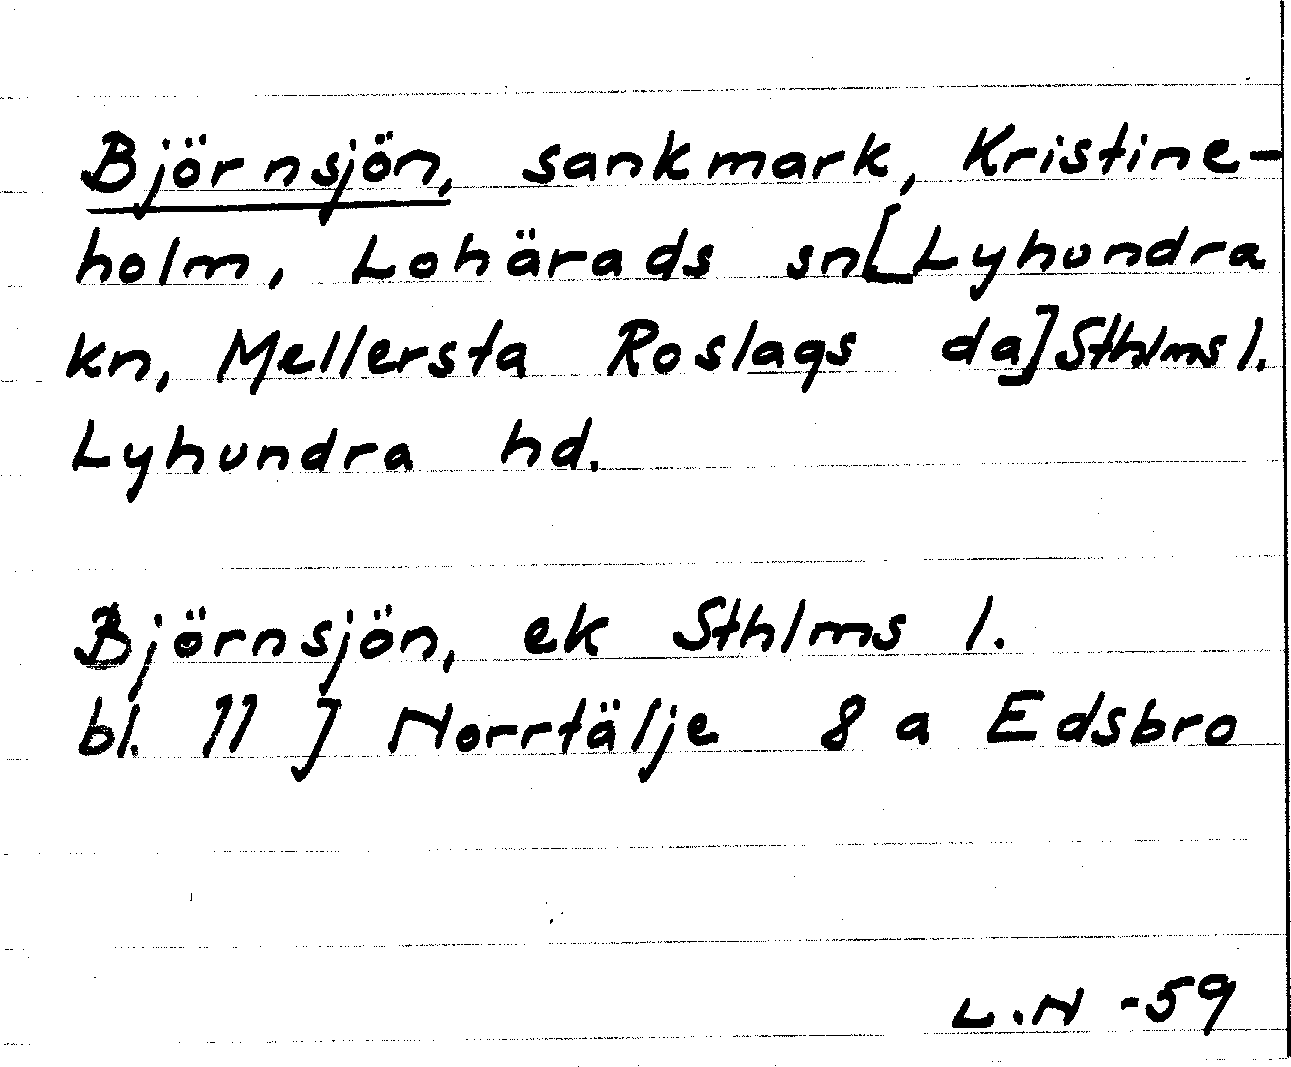 Björnsjön, sankmark, Kristine-
holm, Lohärads sn [Lyhundra
kn, Mellersta Roslags da] Sthlms l.
Lyhundra hd.
Björnsjön, ek Sthlms l.
bl. 11 J Norrtälje 8 a Edsbro
L.N -59